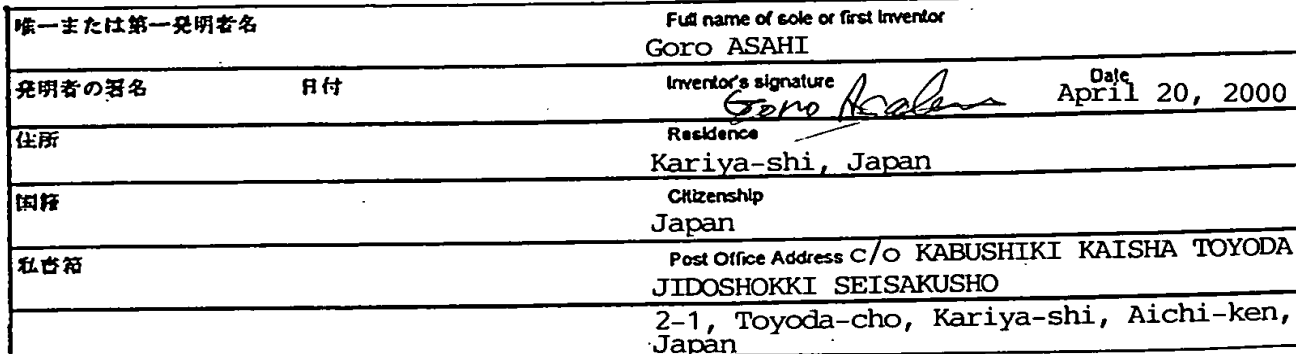 唯一または第一発明者名 Full name of sole or first inventor
Goro ASAHI
発明者の署名 日付 Inventor's signature Goro Asahi Date April 20, 2000
住所 Residence
Kariya-shi, Japan
国籍 Citizenship
Japan
私書箱 Post Office Address C/O KABUSHIKI KAISHA TOYODA
JIDOSHOKKI SEISAKUSHO
2-1, Toyoda-cho, Kariya-shi, Aichi-ken,
Japan